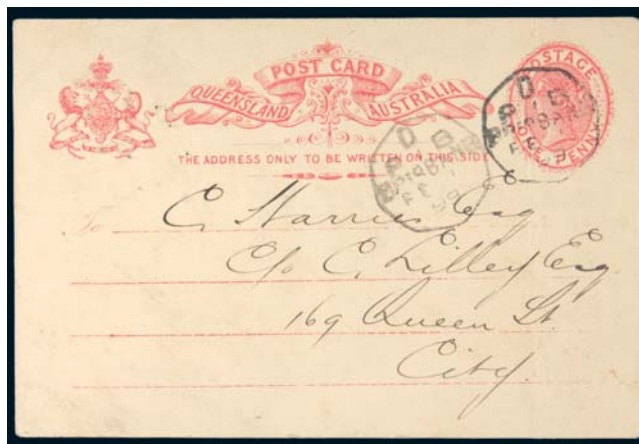 POST CARD
QUEENSLAND AUSTRALIA
POSTAGE
ONE PENNY
THE ADDRESS ONLY TO BE WRITTEN ON THIS SIDE
To C. Harris Esq
C/o C. Lilley Esq
169 Queen St
City.